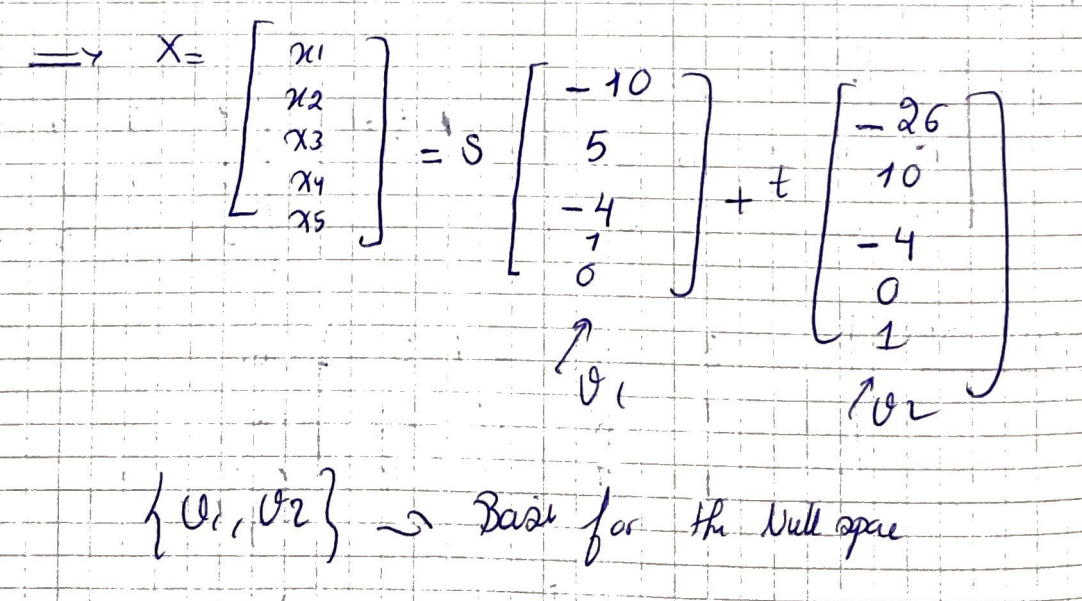 => X = [x1 x2 x3 x4 x5] = s [-10 5 -4 1 0] + t [-26 10 -4 0 1]
↗ v1 ↗ v2
{v1, v2} → Basis for the Null space